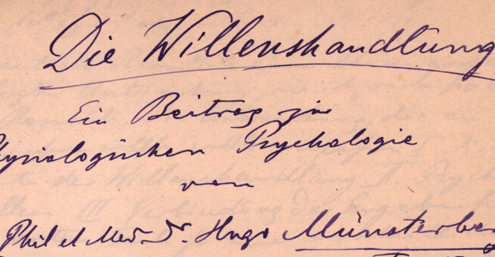 Die Willenshandlung
Ein Beitrag zur
hysiologischen Psychologie
von
Phil et Med. Dr. Hugo Münsterber